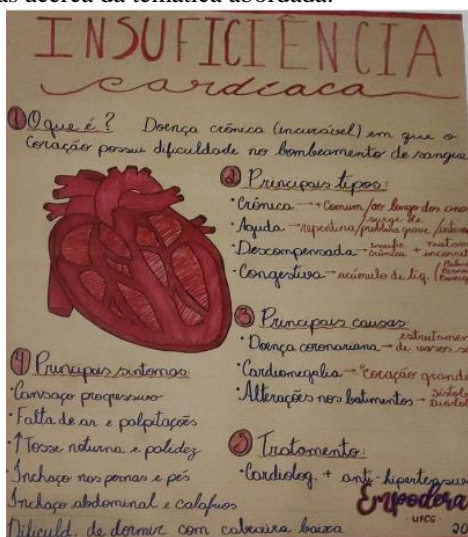 as acerca da temática abordada.
INSUFICIÊNCIA
cardíaca
1 O que é? Doença crônica (incurável) em que o
coração possui dificuldade no bombeamento de sangue
2 Principais tipos:
• Crônica → + comum /ao longo dos ano
• Aguda → repentina/problema grave /
surge de
• Descompensada → crônica +
• Congestiva → acúmulo de líq.
3 Principais causas:
• Doença coronariana → de vasos s
estreitamen
• Cardiomegalia → "coração grande
• Alterações nos batimentos →
4 Principais sintomas:
• Cansaço progressivo
• Falta de ar e palpitações
• ↑ Tosse noturna e palidez
• Inchaço nas pernas e pés
Inchaço abdominal e calafrios
Dificuld. de dormir com cabeceira baixa
5 Tratamento:
• Cardiolog. + anti-hipertensivo
Empodera
• UFCG •
20